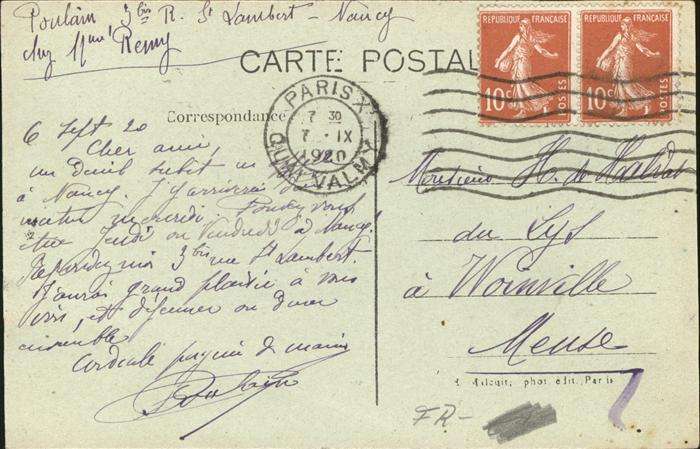 Poulain 3bis R. St Lambert - Nancy
chez Mme Remy
CARTE POSTALE
RÉPUBLIQUE FRANÇAISE
10c POSTES
RÉPUBLIQUE FRANÇAISE
10c POSTES
PARIS X
7 30
7 - IX
1920
QUAI VALMY
Correspondance
6 Sept 20
Cher ami,
un deuil subit m'
à Nancy. J'y arriverai
matin mercredi Pouvez vous
être jeudi ou vendredi à Nancy?
Répondez moi 3bis rue St Lambert.
J'aurai grand plaisir à vous
voir, et déjeuner ou diner
ensemble
Cordiale poignée de mains
Poulain
Monsieur H. de
du Lys
à Woinville
Meuse
phot. édit., Paris
FR-